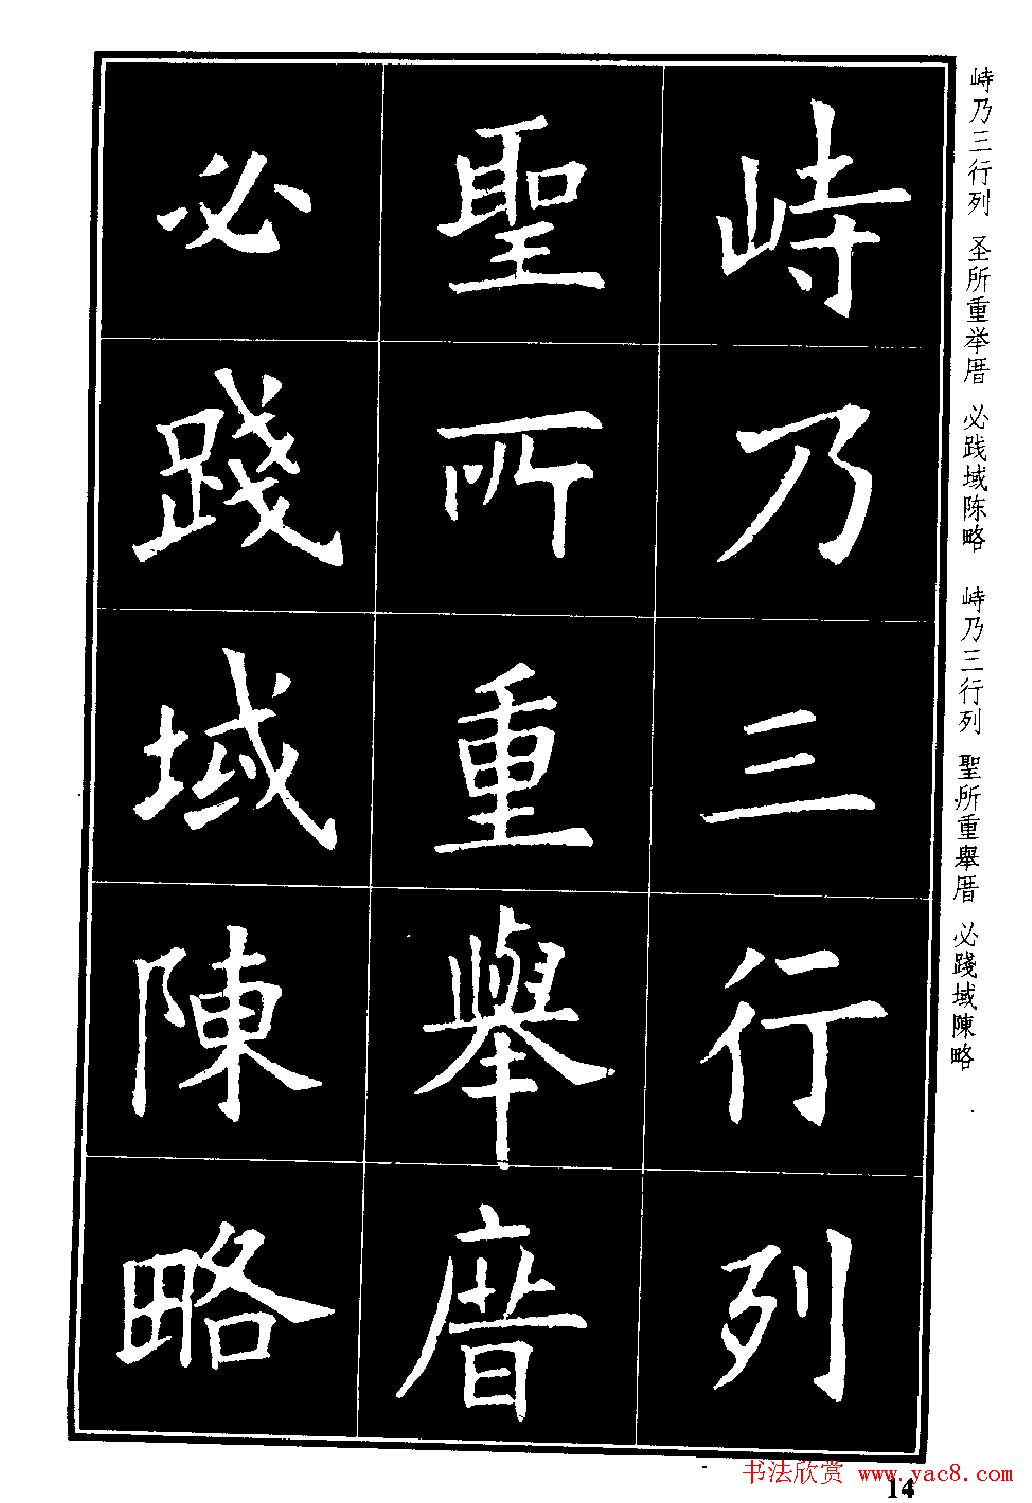 峙乃三行列
聖所重舉厝
必踐域陳略
峙乃三行列 圣所重举厝 必践域陈略 峙乃三行列 聖所重舉厝 必踐域陳略
书法欣赏 www.yac8.com
14